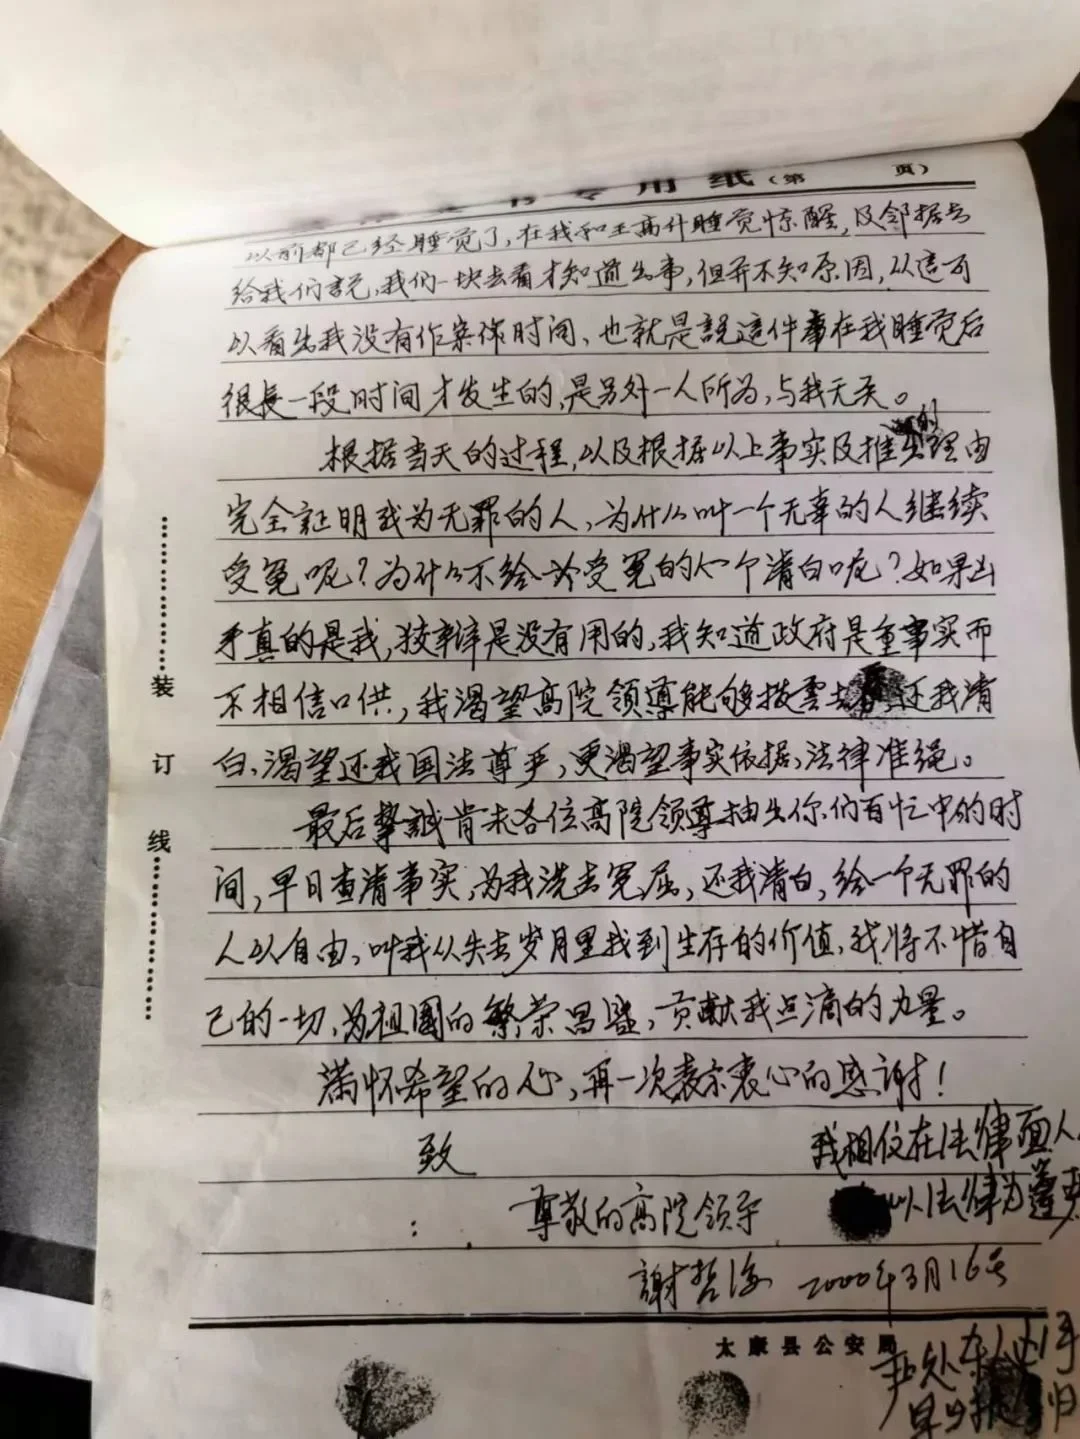 书专用纸（第　　页）
以前都已经睡觉了，在我和王高升睡觉惊醒，及邻据去
给我们説，我们一块去看才知道出事，但并不知原因，从這可
以看出我没有作案作时间、也就是説這件事在我睡觉后
很長一段时间才发生的，是另外一人所为，与我无关。
根据当天的过程，以及根据以上事实及推出的理由
完全証明我为无罪的人，为什么叫一个无辜的人继续
受冤呢？为什么不给于受冤的人个清白呢？如果出
手真的是我，狡辩是没有用的，我知道政府是重事实而
不相信口供，我渴望高院领導能够拨雲去 还我清
白，渴望还我国法尊严，更渴望事实依据，法律准绳。
最后挚誠肯求各位高院领尊抽出你们百忙中的时
间，早日查清事实，为我洗去冤屈，还我清白，给一个无罪的
人以自由，叫我从失去岁月里找到生存的价值，我将不惜自
己的一切，为祖國的繁荣昌盛，贡献我点滴的力量。
满怀希望的心，再一次表示衷心的感謝！
致
我相仪在法律面人
尊敬的高院领导
以法律为
謝哲海 2000年3月16号
太康县公安局
严处 凶手
早日 归
装
订
线